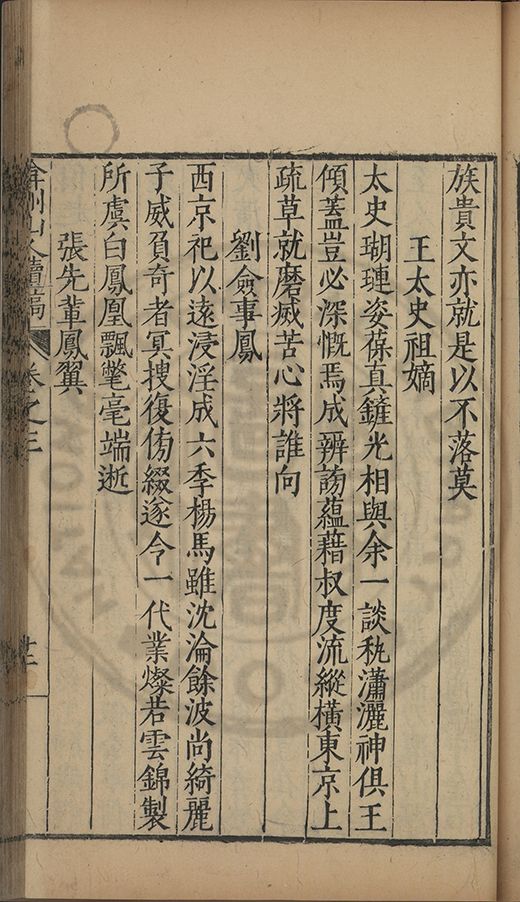 族貴文亦就是以不落莫
王太史祖嫡
太史瑚璉姿葆真鏟光相與余一談秇瀟灑神俱王
傾蓋豈必深慨焉成辨謗蘊藉叔度流縱橫東京上
疏草就磨滅苦心將誰向
劉僉事鳳
西京祀以遠浸淫成六季楊馬雖沈淪餘波尚綺麗
子威負奇者冥搜復傍綴遂令一代業燦若雲錦製
所虞白鳳凰飄氅毫端逝
張先輩鳳翼
弇州山人續稿 卷之三